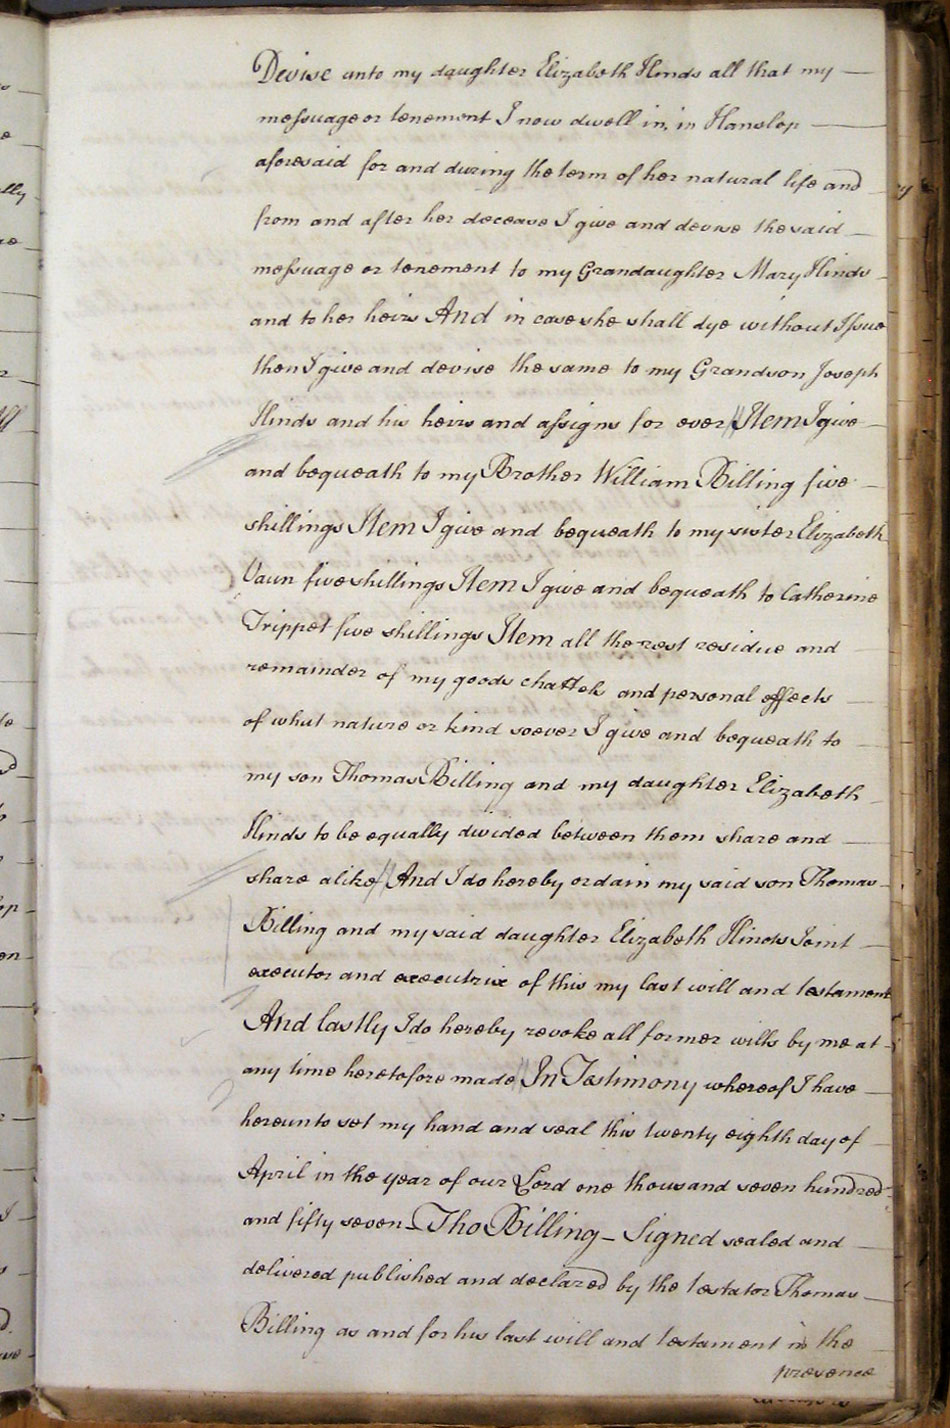 Devise unto my daughter Elizabeth Hinds all that my
messuage or tenement I now dwell in, in Hanslop
aforesaid for and during the term of her natural life and
from and after her decease I give and devise the said
messuage or tenement to my Grandaughter Mary Hinds
and to her heirs And in case she shall dye without Issue
then I give and devise the same to my Grandson Joseph
Hinds and his heirs and assigns for ever // Item I give
and bequeath to my Brother William Billing five
shillings Item I give and bequeath to my sister Elizabeth
Vaun five shillings Item I give and bequeath to Catherine
Trippet five shillings Item all the rest residue and
remainder of my goods chattels and personal effects
of what nature or kind soever I give and bequeath to
my son Thomas Billing and my daughter Elizabeth
Hinds to be equally divided between them share and
share alike // And I do hereby ordain my said son Thomas
Billing and my said daughter Elizabeth Hinds Joint
executor and executrix of this my last will and testament
And lastly I do hereby revoke all former wills by me at
any time heretofore made // In Testimony whereof I have
hereunto set my hand and seal this twenty eighth day of
April in the year of our Lord one thousand seven hundred
and fifty seven – Tho Billing – Signed sealed and
delivered published and declared by the testator Thomas
Billing as and for his last will and testament in the
presence